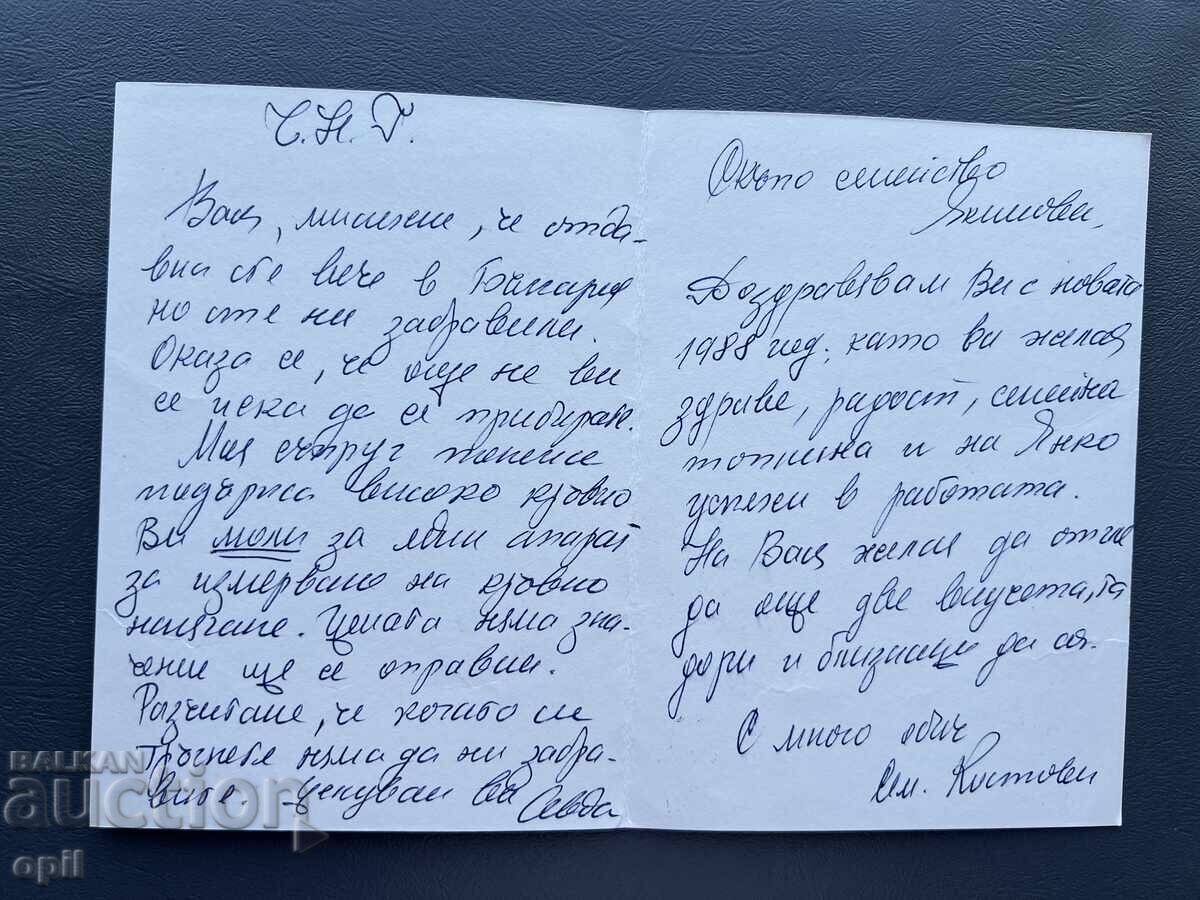 Ч.Н.Г.
Вая, мислехме, че отда-
вна сте вече в България
но сте ни забравили.
Оказа се, че още не ви
се иска да се прибирате.
Моя съпруг понеже
подържа високо кръвно
Ви моли за един апарат
за измерване на кръвно
налягане. Цената няма зна-
чение ще се оправим.
Разчитаме, че когато си
тръгнете няма да ни забра-
вите. Целувам ви
Севда
Скъпо семейство
Якимови,
Поздравявам Ви с новата
1988 год., като ви желая
здраве, радост, семейна
топлина и на Янко
успехи в работата.
На Вая желая да отгле
да още две внучета, та
дори и близнаци да са.
С много обич
Сем. Костови
BALKAN
auction
opil